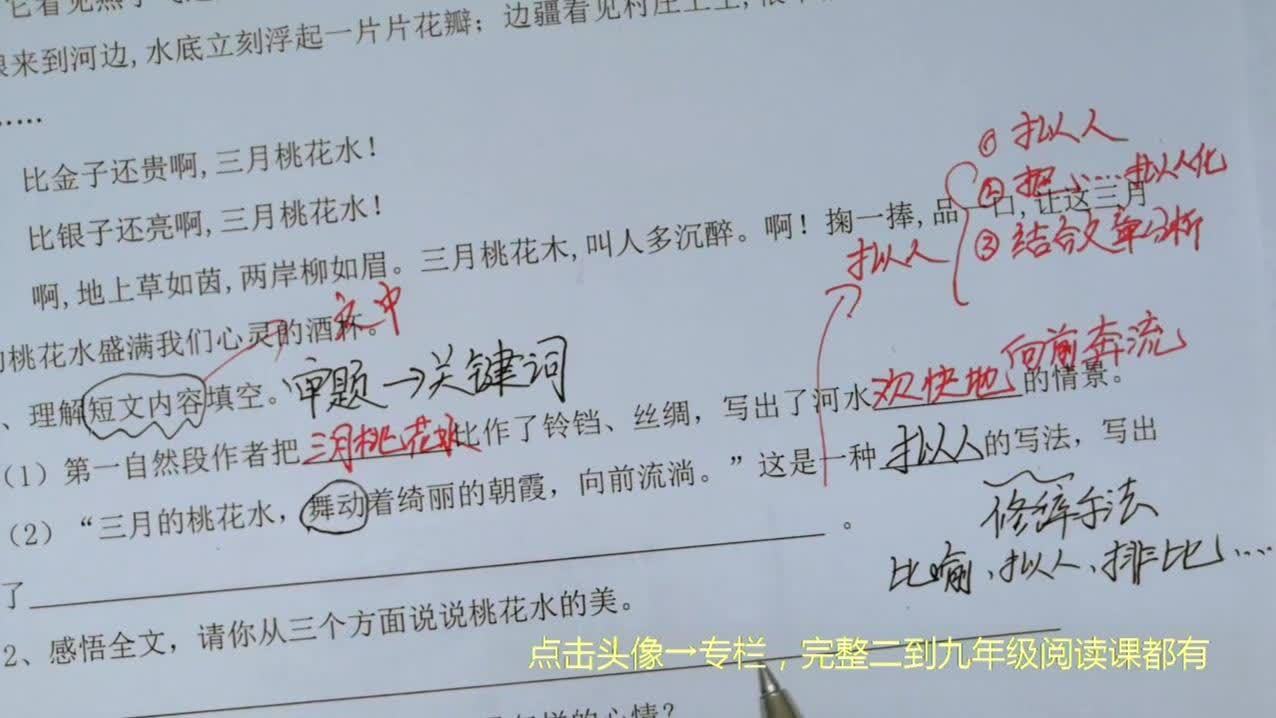 来到河边,水底立刻浮起一片片花瓣；边疆看见村庄上空,
……
比金子还贵啊,三月桃花水！
比银子还亮啊,三月桃花水！
啊,地上草如茵,两岸柳如眉。三月桃花木,叫人多沉醉。啊！掬一捧,品一口,让这三月
桃花水盛满我们心灵的酒杯。
① 拟人
② 把……拟人化
③ 结合文章分析
拟人
文中
、理解短文内容填空。审题→关键词
向前奔流
（1）第一自然段作者把三月桃花水比作了铃铛、丝绸，写出了河水欢快地的情景。
（2）“三月的桃花水，舞动着绮丽的朝霞，向前流淌。”这是一种拟人的写法，写出
了。
修辞手法
比喻、拟人、排比……
2、感悟全文，请你从三个方面说说桃花水的美。
点击头像→专栏，完整二到九年级阅读课都有
的心情？